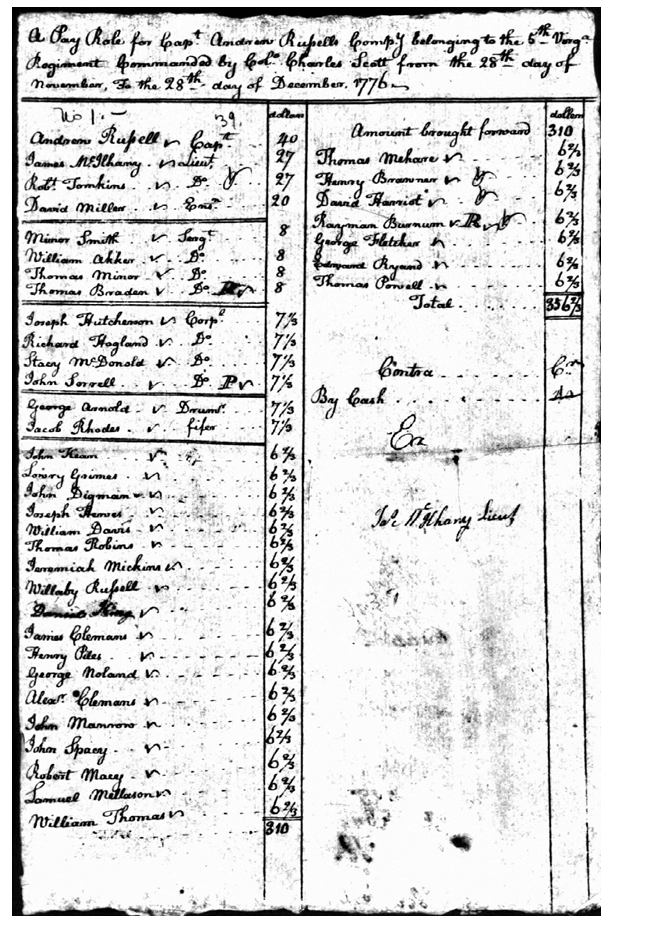 A Pay Role for Capt Andrew Russells Compy belonging to the 5th Virga
Regiment Commanded by Colo Charles Scott from the 28th day of
November, To the 28th day of December. 1776
No 1. 39
dollars
Andrew Russell Capt 40
James McIlhany Lieut 27
Robt Tomkins Do 27
David Miller Ensn 20
Minor Smith Sergt 8
William Akker Do 8
Thomas Minor Do 8
Thomas Braden Do 8
Joseph Hutcherson Corpl 7 1/3
Richard Hogland Do 7 1/3
Stacy McDonald Do 7 1/3
John Sorrell Do P 7 1/3
George Arnold Drumr 7 1/3
Jacob Rhodes fifer 7 1/3
John Keam 6 2/3
Lowry Grimes 6 2/3
John Digman 6 2/3
Joseph Hewes 6 2/3
William Davis 6 2/3
Thomas Robins 6 2/3
Jeremiah Mickins 6 2/3
Willaby Russell 6 2/3
Daniel King 6 2/3
James Clemans 6 2/3
Henry Piles 6 2/3
George Noland 6 2/3
Alexr Clemans 6 2/3
John Manrow 6 2/3
John Spacy 6 2/3
Robert Macy 6 2/3
Samuel Mellason 6 2/3
William Thomas 6 2/3
310
dollars
Amount brought forward 310
Thomas Mehare 6 2/3
Henry Brawner 6 2/3
David Harriot 6 2/3
Rayman Burnum R 6 2/3
George Fletcher 6 2/3
Edward Ryand 6 2/3
Thomas Powell 6 2/3
Total 356 2/3
Contra Cr
By Cash
Ex
Jas McIlhany Lieut